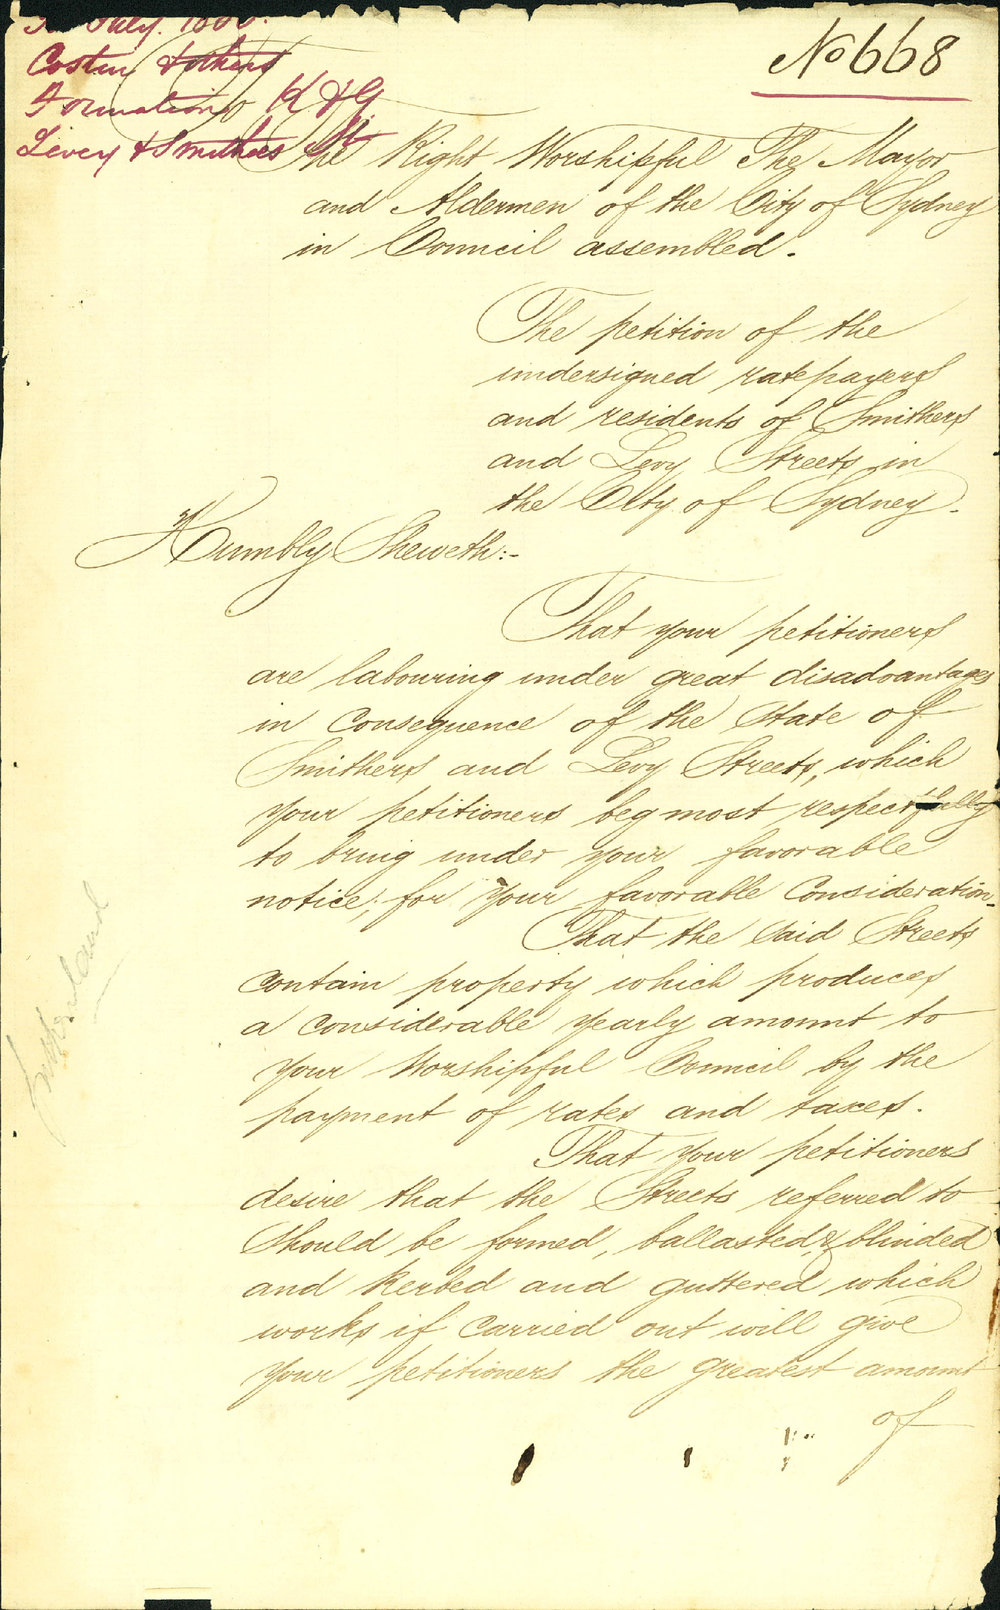 July. 18
Costin & others
Formation K & G
Levey & Smithers St
No 668
To the Right Worshipful The Mayor
and Aldermen of the City of Sydney
in Council assembled.
The petition of the
undersigned ratepayers
and residents of Smithers
and Levy Streets in
the City of Sydney.
Humbly Sheweth:-
That your petitioners
are labouring under great disadvantages
in consequence of the state of
Smithers and Levy Streets, which
your petitioners beg most respectfully
to bring under your favorable
notice, for your favorable consideration.
That the said Streets
contain property which produces
a considerable yearly amount to
your Worshipful Council by the
payment of rates and taxes.
That your petitioners
desire that the Streets referred to
should be formed, ballasted & blinded
and kerbed and guttered which
works if carried out will give
your petitioners the greatest amount
of